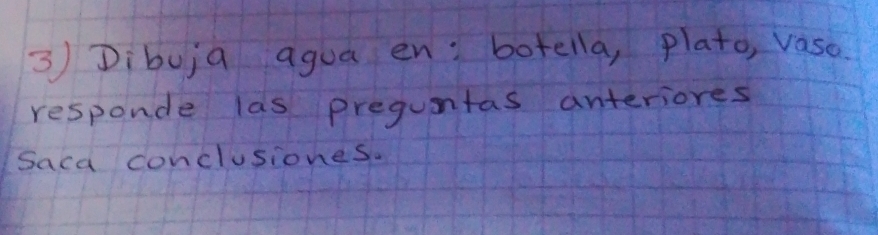 3) Dibuja agua en: botella, plato, vaso.
responde las preguntas anteriores
Saca conclusiones.